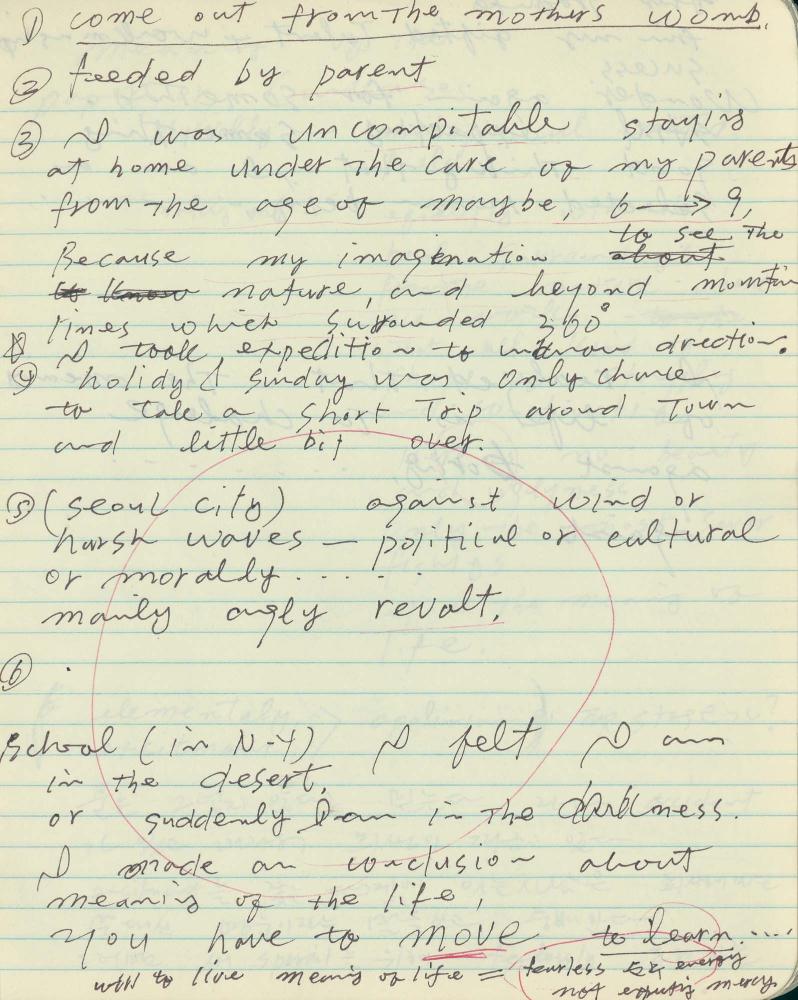 ① come out from the mothers womb.
② feeded by parent
③ I was uncompitable staying
at home under the care of my parents
from the age of maybe, 6 → 9,
to see the
Because my imagination about
to know nature, and beyond mountain
lines which surrounded 360°
I took expedition to unknow direction.
④ holidy & sunday was only chance
to take a short Trip around Town
and little bit over.
⑤ (seoul city) against wind or
harsh waves — political or cultural
or morally......
mainly angly revolt.
⑥ .
School (in N-Y) I felt I am
in the desert,
or suddenly I am in the darkness.
I made an conclusion about
meaning of the life,
you have to move to learn.....
will to live meanig of life = fearless energy
not mercy